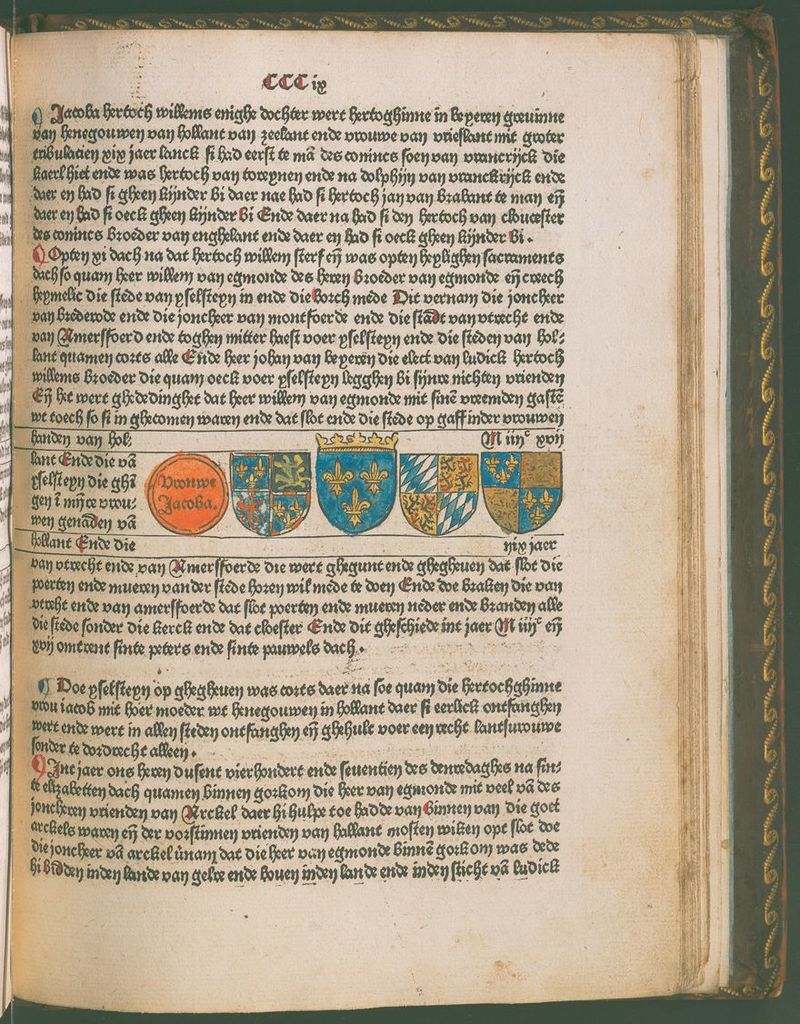 CCC ix
Jacoba hertoch willems enighe dochter wert hertoghinne in beyeren grauinne
van henegouwen van hollant van zeelant ende vrouwe van vrieslant mit groter
tribulacien xix jaer lanck si had eerst te mā des conincs soen van vrancrijck die
kaerl hiet ende was hertoch van toreynen ende na dolphijn van vranckrijck ende
daer en had si gheen kijnder bi daer nae had si hertoch jan van brabant te man eñ
daer en had si oeck gheen kijnder bi Ende daer na had si den hertoch van cloucester
des conincs broeder van enghelant ende daer en had si oeck gheen kijnder bi.
Opten xi dach na dat hertoch willem sterf eñ was opten heylighen sacraments
dach so quam heer willem van egmonde des heren broeder van egmonde eñ creech
heymelic die stede van yselsteyn in ende die borch mede Dit vernam die joncheer
van brederode ende die joncheer van montfoerde ende die stadt van vtrecht ende
van Amersfoerd ende toghen mitter haest voer yselsteyn ende die steden van hol⸗
lant quamen corts alle Ende heer johan van beyeren die elect van ludick hertoch
willems broeder die quam oeck voer yselsteyn legghen bi sijnre nichten vrienden
Eñ het wert ghededinghet dat heer willem van egmonde mit sinē vreemden gastē
wt toech so si in ghecomen waren ende dat slot ende die stede op gaff inder vrouwen
handen van hol⸗
M iiijᶜ xvij
lant Ende die vā
yselsteyn die ghī
gen ī mijre vrou⸗
wen genaden vā
hollant Ende die
Vrouwe
Jacoba.
xix jaer
van vtrecht ende van Amersfoerde die wert ghegunt ende ghegheuen dat slot die
poerten ende mueren vander stede horen wil mede te doen Ende doe braken die van
vtrecht ende van amersfoerde dat slot poerten ende mueren neder ende branden alle
die stede sonder die kerck ende dat cloester Ende dit gheschiede int jaer M iiijᶜ eñ
xvij omtrent sinte peters ende sinte pauwels dach.
Doe yselsteyn op ghegheuen was corts daer na soe quam die hertochghinne
vrou iacob mit hoer moeder wt henegouwen in hollant daer si eerlick ontfanghen
wert ende wert in allen steden ontfanghen eñ ghehult voer een recht lantsurouwe
sonder te dordrecht alleen.
Int jaer ons heren dusent vierhondert ende seuentien des denredaghes na sin⸗
te elizabetten dach quamen binnen gorkom die heer van egmonde mit veel vā des
joncheren vrienden van Arckel daer hi hulpe toe hadde van binnen van die goet
arckels waren eñ der vorstinnen vrienden van hallant mosten wiken opt slot doe
die joncheer vā arckel v̄nam dat die heer van egmonde binnē gorkom was dede
hi bidden inden lande van gelre ende bouen inden lande ende inden sticht vā ludick